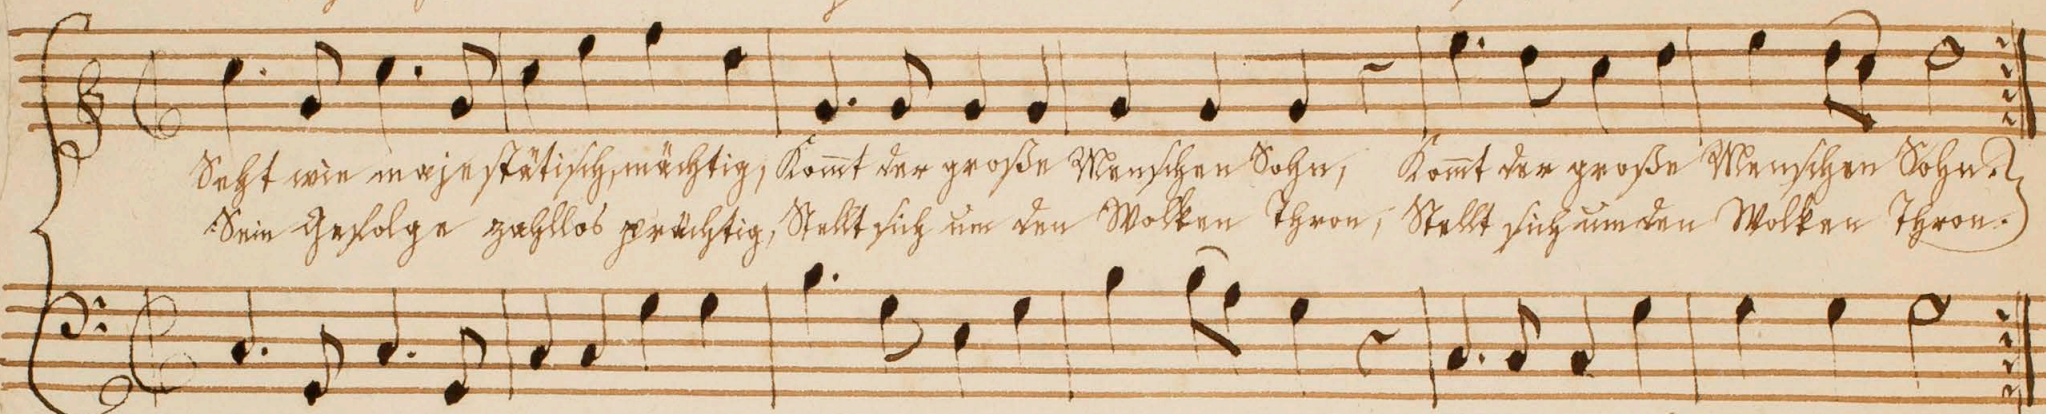 Seht wie majestätisch, mächtig, Kom̄t der große Menschen Sohn, Kom̄t der große Menschen Sohn.
Sein Gefolge zahllos prächtig, Stellt sich um den Wolken Thron, Stellt sich um den Wolken Thron.